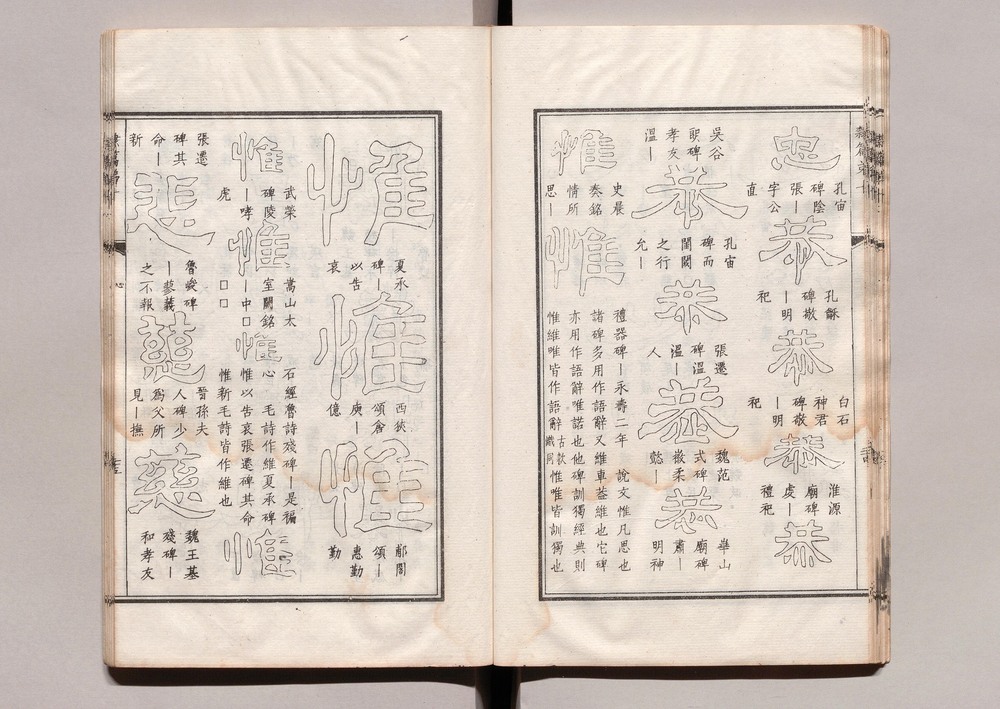 忠
孔宙
碑陰
張—
字公
直
恭
孔龢
碑敬
—明
祀
恭
白石
神君
碑敬
—明
祀
恭
淮源
廟碑
虔—
禮祀
恭
吳谷
郎碑
孝友
溫—
恭
孔宙
碑而
閨閾
之行
允—
恭
張遷
碑溫
溫—
人
恭
魏范
式碑
敬柔
懿—
恭
華山
廟碑
肅—
明神
惟
史晨
奏銘
情所
思—
惟
禮器碑—永壽二年 說文惟凡思也
諸碑多用作語辭又維車葢維也它碑
亦用作語辭唯諾也他碑訓獨經典則
惟維唯皆作語辭古欵識同惟惟唯皆訓獨也
惟
夏承
碑—
以告
哀
惟
西狹
頌倉
庾—
億
惟
郙閣
頌—
惠勤
勤
惟
武榮
碑陵
—哮
虎
惟
嵩山太
室闕銘
—中□
□□
惟
石經魯詩殘碑—是褊
心 毛詩作維夏承碑
惟以告哀張遷碑其命
惟新毛詩皆作維也
惟
張遷
碑其
命—
新
悲
魯峻碑
—蓼義
之不報
慈
晉孫夫
人碑少
爲父所
見—撫
慈
魏王基
殘碑—
和孝友